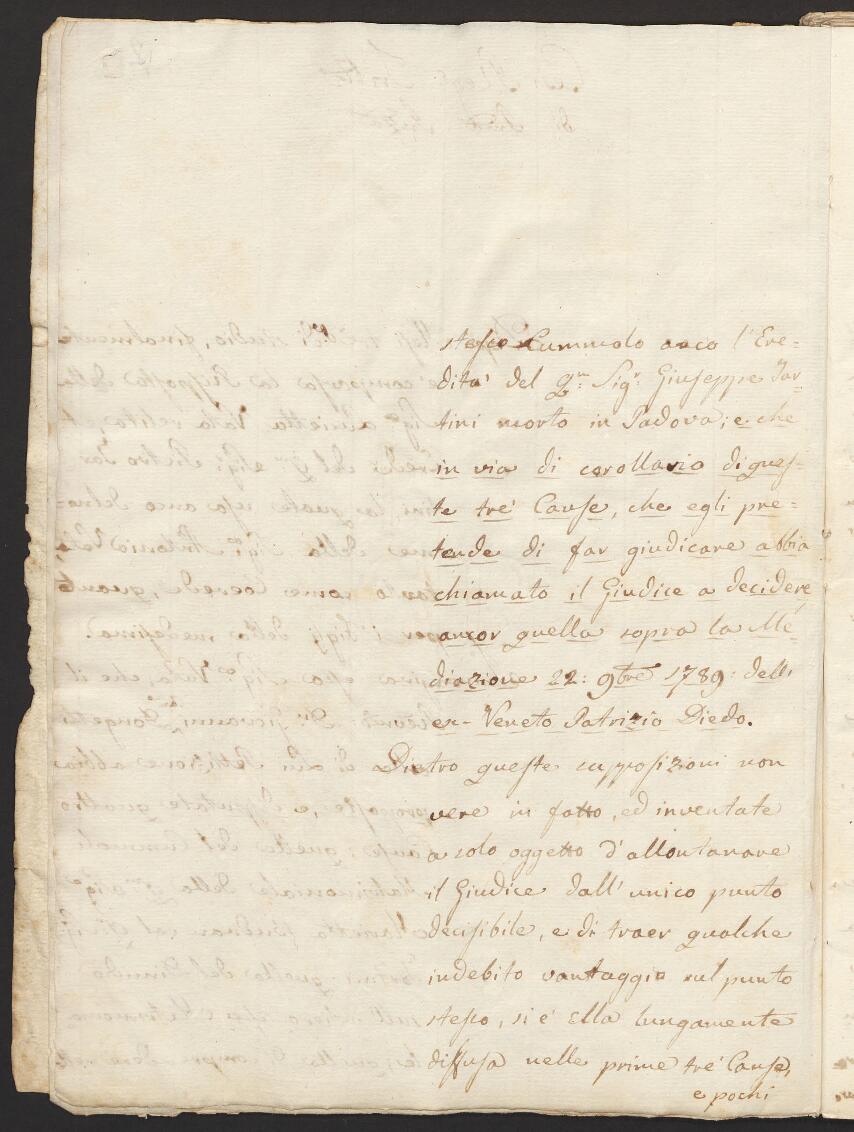 stesso Cummolo anco l'Ere=
dita' del q.m Sig.r Giuseppe Tar=
tini morto in Padova; e che
in via di corollario di ques=
te tre' Cause, che egli pre=
tende di far giudicare abbia
chiamato il Giudice a decidere
ancor quella sopra la Me=
diazione 22: 9bre 1789: dell'
ex-Veneto Patrizio Diedo.
Dietro queste supposizioni non
vere in fatto, ed inventate
a solo oggetto d'allontanare
il Giudice dall'unico punto
decisibile, e di traer qualche
indebito vantaggio sul punto
stesso, si è ella lungamente
diffusa nelle prime tre' Cause,
e pochi